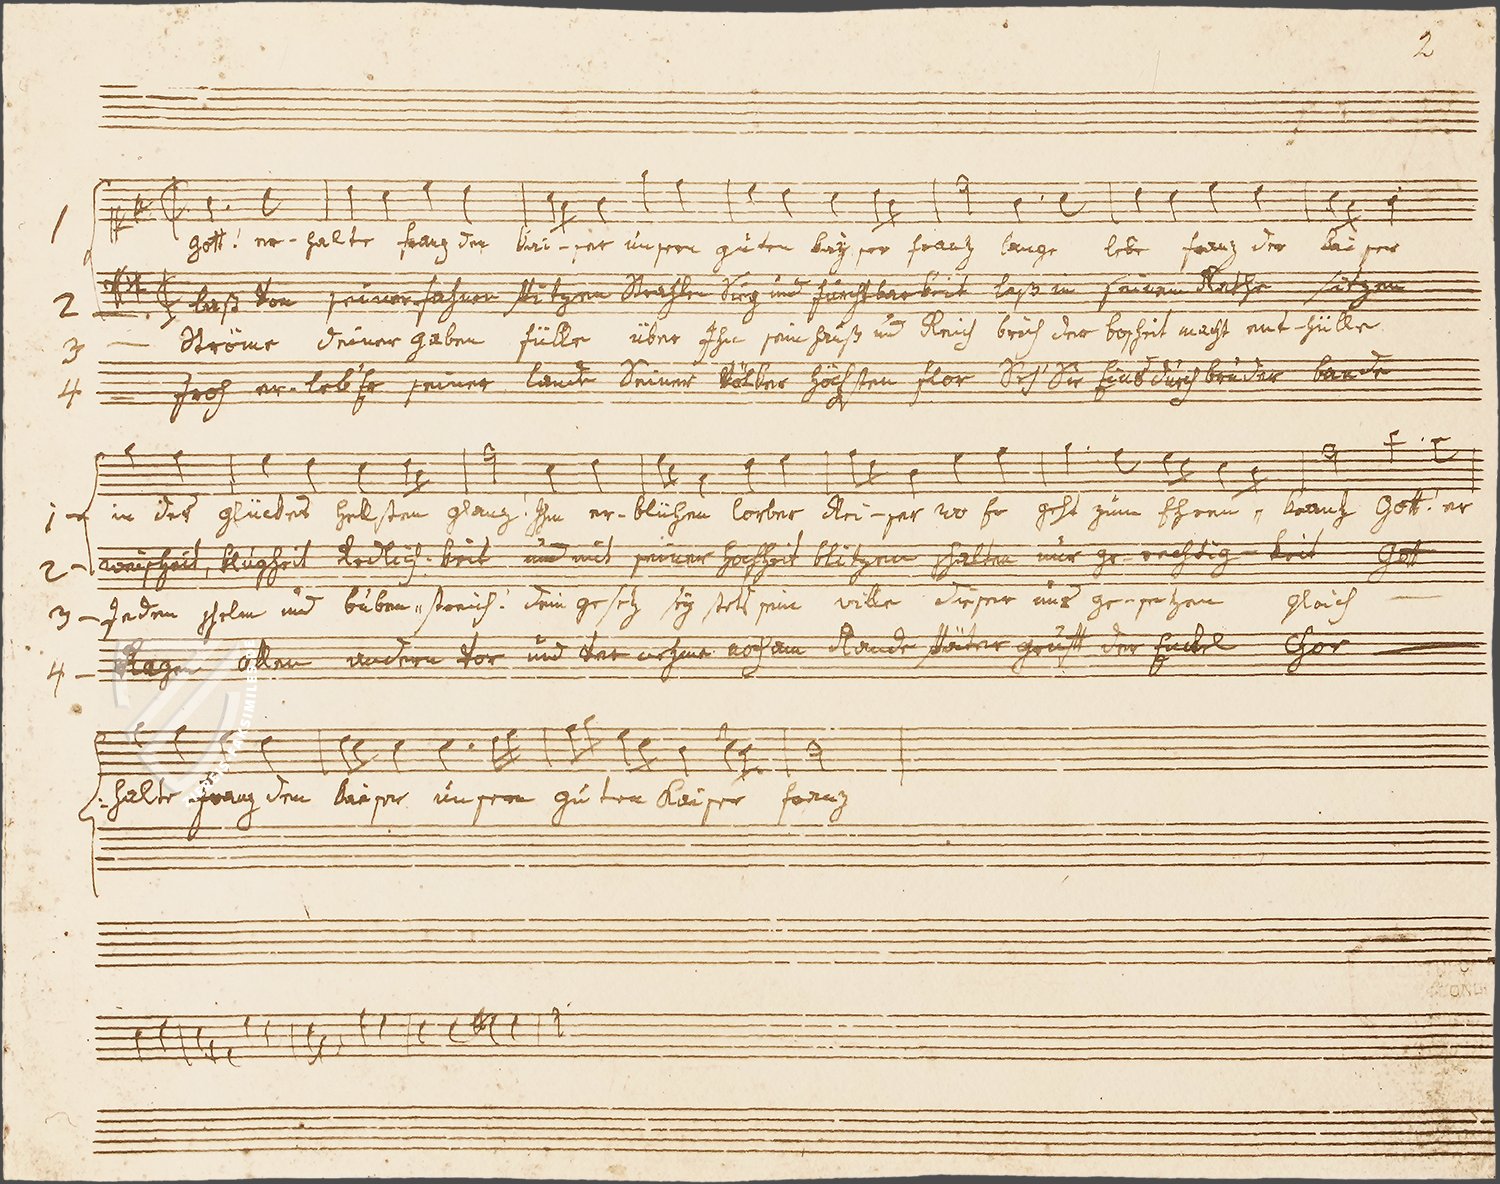 2
1 Gott! er-halte Franz den Kai-ser unsern guten Kay ser Franz lange lebe Franz der Kai ser
2 laß von seiner Fahnen Spitzen Strahlen Sieg und Furchtbarkeit laß in seinem Rathe Sitzen
3 Ströme deiner gaben fülle über Ihn sein Hauß und Reich brich der bosheit macht ent-hülle
4 Froh er-leb' Er seiner lande Seiner Völker Höchsten Flor Seh' Sie Eins durch brüder bande
1 in des glückes Hellsten glanz! Ihm er-blühen lorber Rei-ser wo Er geht zum Ehren-kranz Gott! er
2 weisheit, Klugheit Redlich-keit und mit seiner Hochheit blitzen schalten nur ge-rechtig-keit Gott
3 Jeden schelm und buben-streich! dein gesetz sey stets sein wille dieser uns ge-setzen gleich
4 Ragen allen andern vor und vernehme noch am Rande Später gruft der Enckel Chor
halte Franz den Kaiser unsern guten Kaiser Franz